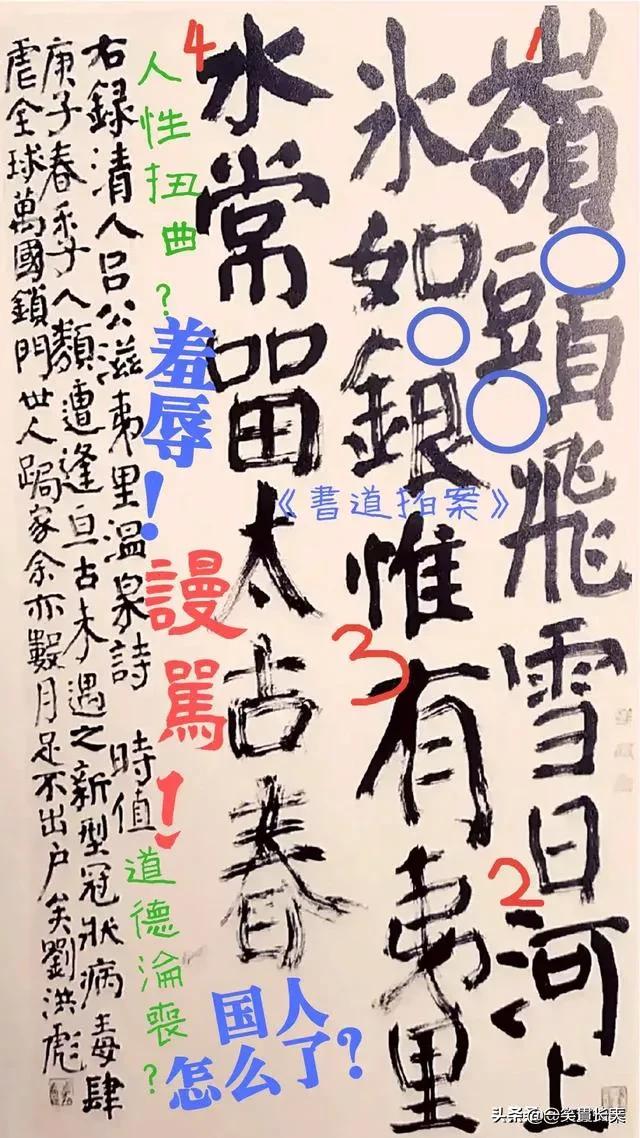 嶺頭飛雪日河上
氷如銀惟有夷里
水常留太古春
右録清人吕公滋夷里温泉詩 時值
庚子春季人類遭逢亘古未遇之新型冠狀病毒肆
虐全球萬國鎖門世人跼家余亦數月足不出户矣劉洪彪
1
2
3
4
人性扭曲?
羞辱!
《書道拍案》
謾罵!
道德淪喪?
国人
怎么了?
头条 @笑賣长荣